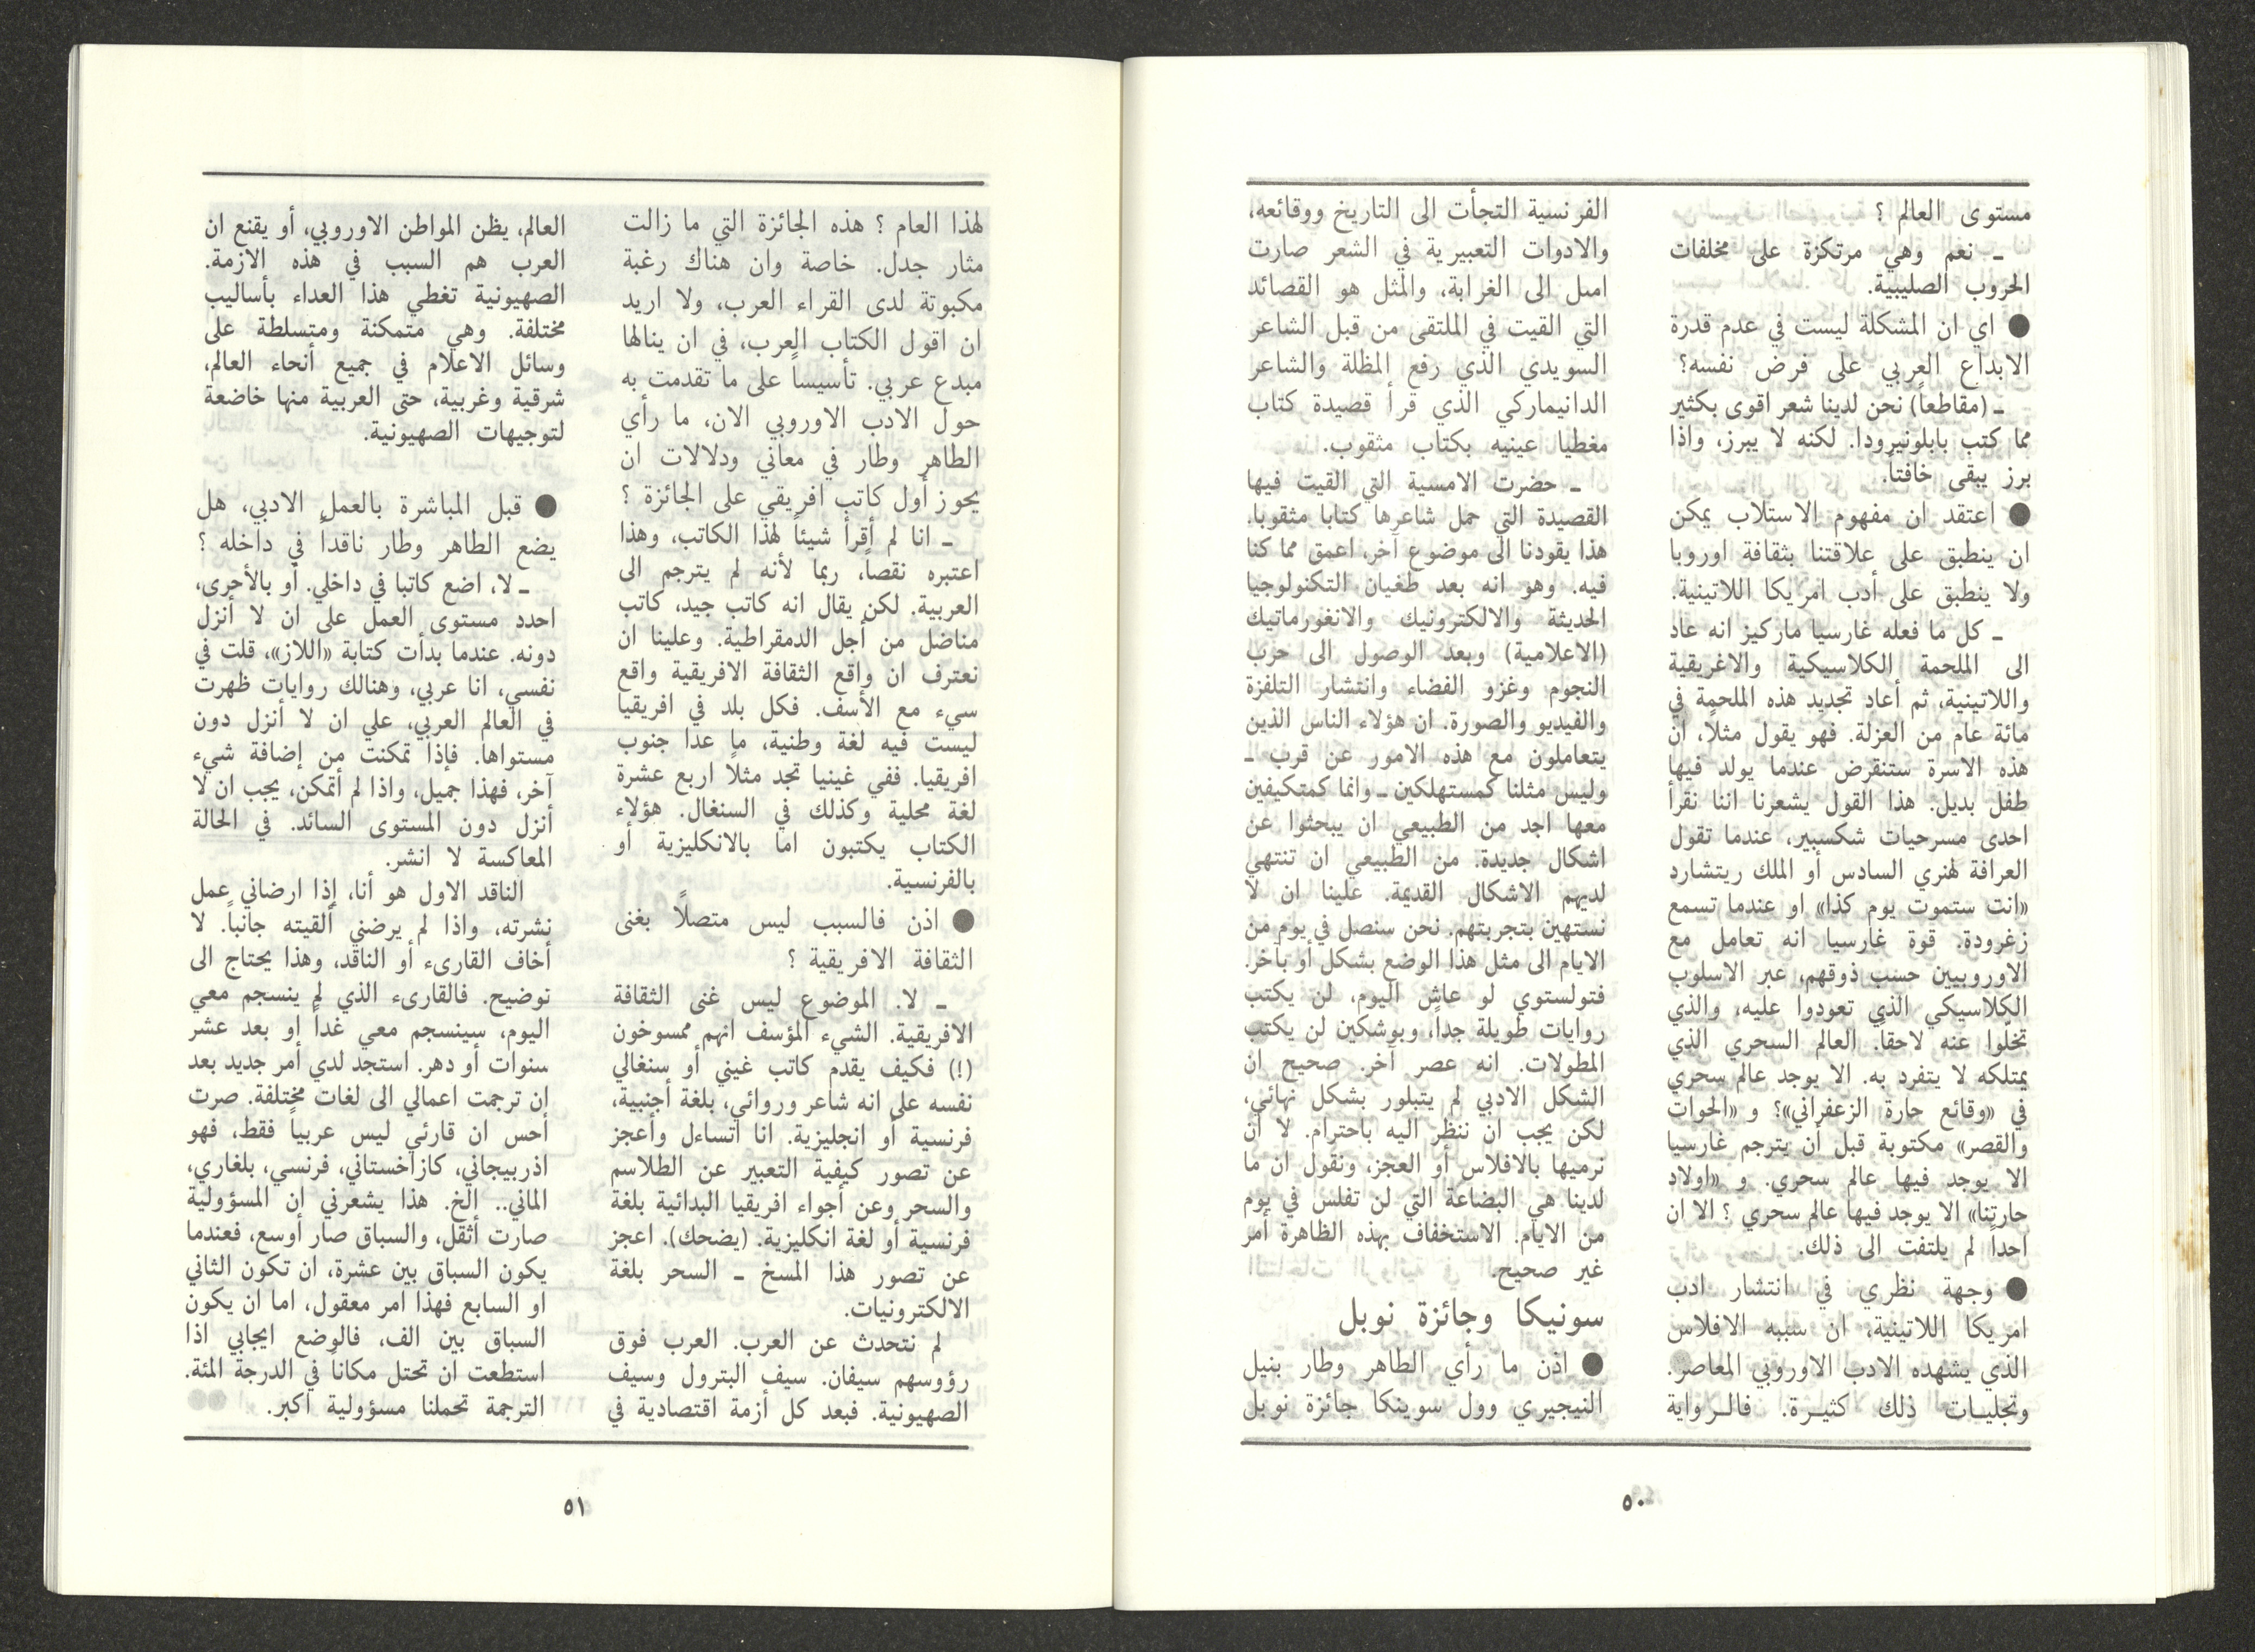 مستوى العالم ؟
ـ نعم وهي مرتكزة على مخلفات
الحروب الصليبية.
● اي ان المشكلة ليست في عدم قدرة
الابداع العربي على فرض نفسه؟
ـ (مقاطعاً) نحن لدينا شعر اقوى بكثير
مما كتب بابلونيرودا. لكنه لا يبرز، واذا
برز يبقى خافتاً.
● اعتقد ان مفهوم الاستلاب يمكن
ان ينطبق على علاقتنا بثقافة اوروبا
ولا ينطبق على أدب امريكا اللاتينية.
ـ كل ما فعله غارسيا ماركيز انه عاد
الى الملحمة الكلاسيكية والاغريقية
واللاتينية، ثم أعاد تجديد هذه الملحمة في
مائة عام من العزلة. فهو يقول مثلاً، ان
هذه الاسرة ستنقرض عندما يولد فيها
طفل بديل. هذا القول يشعرنا اننا نقرأ
احدى مسرحيات شكسبير، عندما تقول
العرافة لهنري السادس أو الملك ريتشارد
«انت ستموت يوم كذا» او عندما تسمع
زغرودة. قوة غارسيا انه تعامل مع
الاوروبيين حسب ذوقهم، عبر الاسلوب
الكلاسيكي الذي تعودوا عليه، والذي
تخلّوا عنه لاحقا. العالم السحري الذي
يمتلكه لا يتفرد به. الا يوجد عالم سحري
في «وقائع حارة الزعفراني»؟ و «الحوات
والقصر» مكتوبة قبل أن يترجم غارسيا
الا يوجد فيها عالم سحري. و «اولاد
حارتنا» الا يوجد فيها عالم سحري ؟ الا ان
احداً لم يلتفت الى ذلك.
● وجهة نظري في انتشار ادب
امريكا اللاتينية، ان سببه الافلاس
الذي يشهده الادب الاوروبي المعاصر.
وتجليات ذلك كثيـرة. فالـرواية
الفرنسية التجأت الى التاريخ ووقائعه،
والادوات التعبيرية في الشعر صارت
اميل الى الغرابة، والمثل هو القصائد
التي القيت في الملتقى من قبل الشاعر
السويدي الذي رفع المظلة والشاعر
الدانيماركي الذي قرأ قصيدة كتاب
مغطيا عينيه بكتاب مثقوب.
ـ حضرت الامسية التي القيت فيها
القصيدة التي حمل شاعرها كتابا مثقوبا.
هذا يقودنا الى موضوع آخر، اعمق مما كنا
فيه. وهو انه بعد طغيان التكنولوجيا
الحديثة والالكترونيك والانغورماتيك
(الاعلامية) وبعد الوصول الى حرب
النجوم وغزو الفضاء وانتشار التلفزة
والفيديو والصورة. ان هؤلاء الناس الذين
يتعاملون مع هذه الامور عن قرب ـ
وليس مثلنا كمستهلكين ـ وانما كمتكيفين
معها اجد من الطبيعي ان يبحثوا عن
اشكال جديدة. من الطبيعي ان تنتهي
لديهم الاشكال القديمة. علينا ان لا
نستهين بتجربتهم. نحن سنصل في يوم من
الايام الى مثل هذا الوضع بشكل أو بآخر.
فتولستوي لو عاش اليوم، لن يكتب
روايات طويلة جداً، وبوشكين لن يكتب
المطولات. انه عصر آخر. صحيح ان
الشكل الادبي لم يتبلور بشكل نهائي،
لكن يجب ان ننظر اليه باحترام. لا أن
نرميها بالافلاس أو العجز، ونقول ان ما
لدينا هي البضاعة التي لن تفلس في يوم
من الايام. الاستخفاف بهذه الظاهرة أمر
غير صحيح.
سونيكا وجائزة نوبل
● اذن ما رأي الطاهر وطار بنيل
النيجيري وول سوينكا جائزة نوبل
٥٠
لهذا العام ؟ هذه الجائزة التي ما زالت
مثار جدل. خاصة وان هناك رغبة
مكبوتة لدى القراء العرب، ولا اريد
ان اقول الكتاب العرب، في ان ينالها
مبدع عربي. تأسيساً على ما تقدمت به
حول الادب الاوروبي الان، ما رأي
الطاهر وطار في معاني ودلالات ان
يحوز أول كاتب افريقي على الجائزة ؟
ـ انا لم أقرأ شيئاً لهذا الكاتب، وهذا
اعتبره نقصاً، ربما لأنه لم يترجم الى
العربية. لكن يقال انه كاتب جيد، كاتب
مناضل من أجل الدمقراطية. وعلينا ان
نعترف ان واقع الثقافة الافريقية واقع
سيء مع الأسف. فكل بلد في افريقيا
ليست فيه لغة وطنية، ما عدا جنوب
افريقيا. ففي غينيا تجد مثلاً اربع عشرة
لغة محلية وكذلك في السنغال. هؤلاء
الكتاب يكتبون اما بالانكليزية أو
بالفرنسية.
● اذن فالسبب ليس متصلاً بغنى
الثقافة الافريقية ؟
ـ لا. الموضوع ليس غنى الثقافة
الافريقية. الشيء المؤسف انهم ممسوخون
(!) فكيف يقدم كاتب غيني أو سنغالي
نفسه على انه شاعر وروائي، بلغة أجنبية،
فرنسية أو انجليزية. انا اتساءل وأعجز
عن تصور كيفية التعبير عن الطلاسم
والسحر وعن أجواء افريقيا البدائية بلغة
فرنسية أو لغة انكليزية. (يضحك). اعجز
عن تصور هذا المسخ ـ السحر بلغة
الالكترونيات.
لم نتحدث عن العرب. العرب فوق
رؤوسهم سيفان. سيف البترول وسيف
الصهيونية. فبعد كل أزمة اقتصادية في
العالم، يظن المواطن الاوروبي، أو يقنع ان
العرب هم السبب في هذه الازمة.
الصهيونية تغطي هذا العداء بأساليب
مختلفة. وهي متمكنة ومتسلطة على
وسائل الاعلام في جميع أنحاء العالم،
شرقية وغربية، حتى العربية منها خاضعة
لتوجيهات الصهيونية.
● قبل المباشرة بالعمل الادبي، هل
يضع الطاهر وطار ناقداً في داخله ؟
ـ لا، اضع كاتبا في داخلي. أو بالأحرى،
احدد مستوى العمل على ان لا أنزل
دونه. عندما بدأت كتابة «اللاز»، قلت في
نفسي، انا عربي، وهنالك روايات ظهرت
في العالم العربي، علي ان لا أنزل دون
مستواها. فإذا تمكنت من إضافة شيء
آخر، فهذا جميل، واذا لم أتمكن، يجب ان لا
أنزل دون المستوى السائد. في الحالة
المعاكسة لا انشر.
الناقد الاول هو أنا، إذا ارضاني عمل
نشرته، واذا لم يرضني ألقيته جانباً. لا
أخاف القارىء أو الناقد، وهذا يحتاج الى
توضيح. فالقارىء الذي لم ينسجم معي
اليوم، سينسجم معي غداً او بعد عشر
سنوات أو دهر. استجد لدي أمر جديد بعد
ان ترجمت اعمالي الى لغات مختلفة. صرت
أحس ان قارئي ليس عربياً فقط، فهو
اذربيجاني، كازاخستاني، فرنسي، بلغاري،
الماني.. الخ. هذا يشعرني ان المسؤولية
صارت أثقل، والسباق صار أوسع، فعندما
يكون السباق بين عشرة، ان تكون الثاني
او السابع فهذا امر معقول، اما ان يكون
السباق بين الف، فالوضع ايجابي اذا
استطعت ان تحتل مكاناً في الدرجة المئة.
الترجمة تحملنا مسؤولية اكبر.
٥١